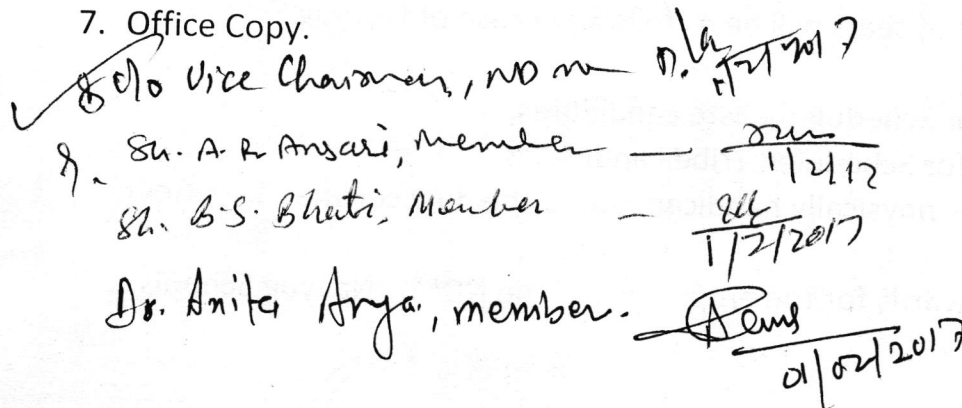 7. Office Copy.
8 o/o Vice Chairman, ND 1/2/2017
9. Sh. A.R Ansari, Member — 1/2/17
Sh. B.S. Bhati, Member — 1/2/2017
Dr. Anita Arya, member. 01/02/2017